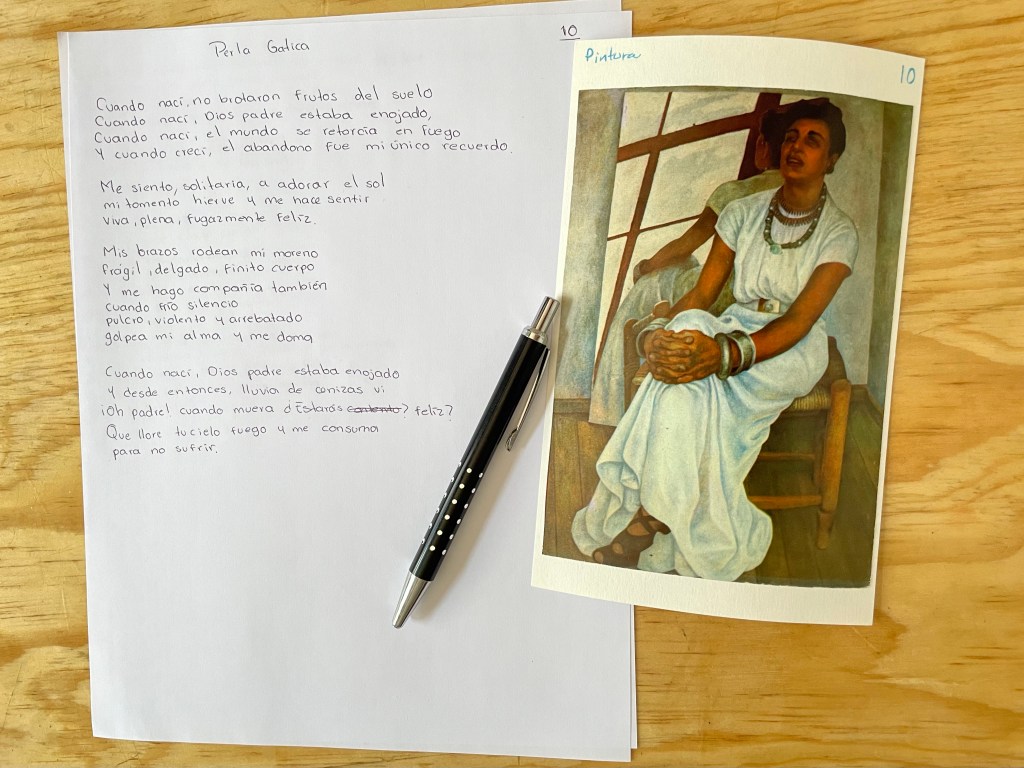 Perla Gatica
10
Cuando nací, no brotaron frutos del suelo
Cuando nací, Dios padre estaba enojado,
Cuando nací, el mundo se retorcía en fuego
Y cuando crecí, el abandono fue mi único recuerdo.
Me siento, solitaria, a adorar el sol
mi tomento hierve y me hace sentir
viva, plena, fugazmente feliz.
Mis brazos rodean mi moreno
frágil, delgado, finito cuerpo
Y me hago compañía también
cuando frío silencio
pulcro, violento y arrebatado
golpea mi alma y me doma
Cuando nací, Dios padre estaba enojado
Y desde entonces, lluvia de cenizas vi
¡Oh padre! cuando muera ¿Estarás contento? feliz?
Que llore tu cielo fuego y me consuma
para no sufrir.
Pintura
10